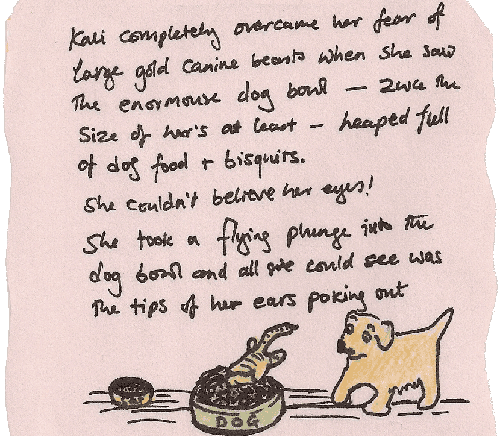 Kali completely overcame her fear of
large gold canine beasts when she saw
the enormouse dog bowl — 2wice the
size of her's at least – heaped full
of dog food + bisquits.
She couldn't believe her eyes!
She took a flying plunge into the
dog bowl and all we could see was
the tips of her ears poking out
DOG